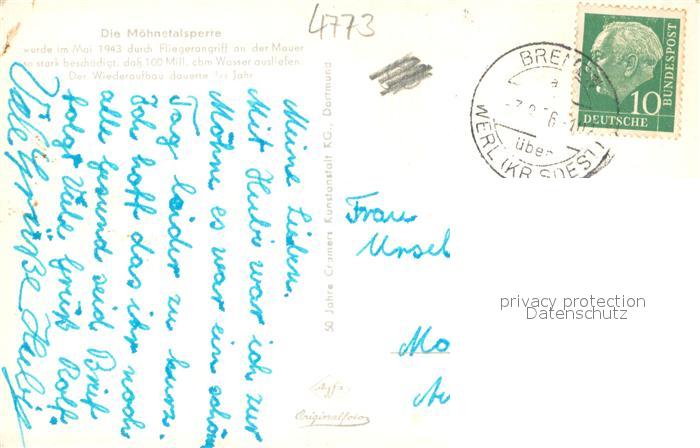 4773
Die Möhnetalsperre
wurde im Mai 1943 durch Fliegerangriff an der Mauer
so stark beschädigt, daß 100 Mill. cbm Wasser ausliefen.
Der Wiederaufbau dauerte Jahr
Meine Lieben.
Mit Hubi war ich zur
Möhne es war ein schön
Tag leider zu kurz.
Ich hoff das ihr noch
alle gesund seid Brief
folgt Viele Grüß Rolf
Viele Grüße Hubi
50 Jahre Cramers Kunstanstalt KG., Dortmund
Agfa
Originalfoto
BREMEN
a
über
WERL (KR SOEST)
10
DEUTSCHE
BUNDESPOST
Frau
Ursel
Mo
privacy protection
Datenschutz